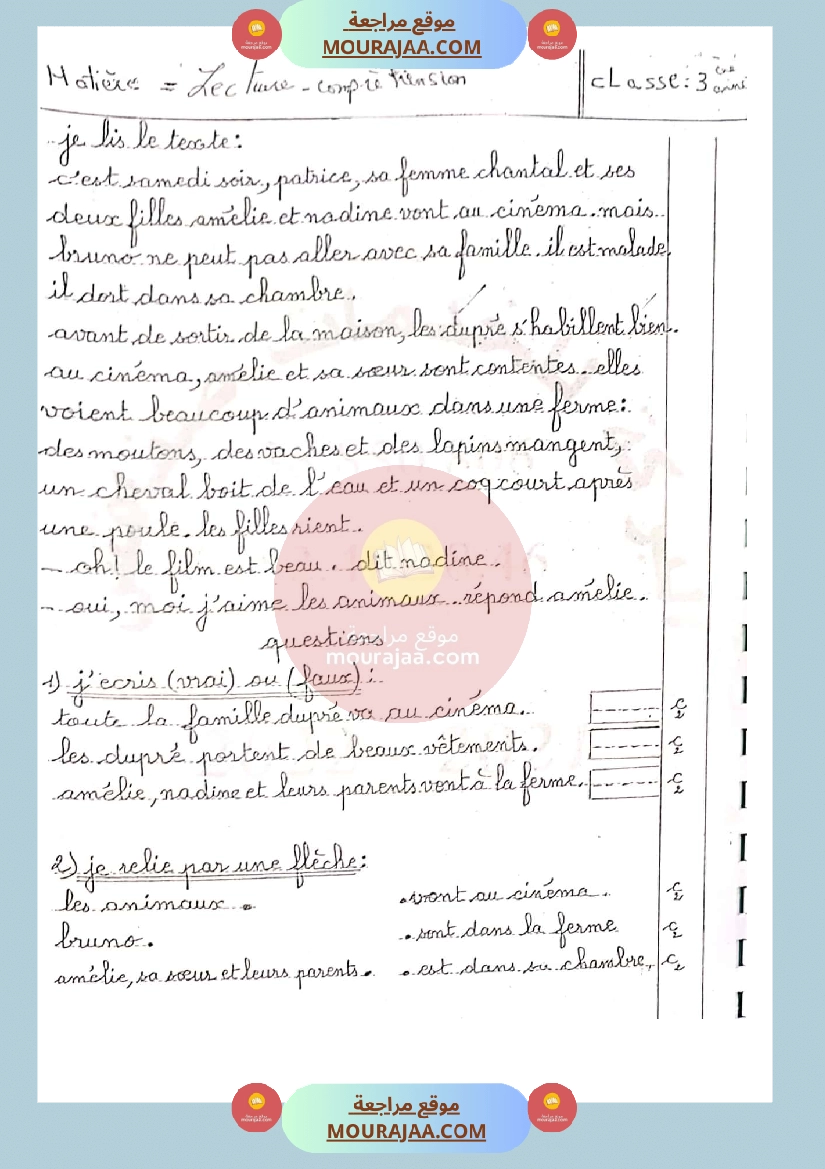 موقع مراجعة
MOURAJAA.COM
Matière = Lecture - compréhension
classe: 3 ème année
je lis le texte:
c'est samedi soir, patrice, sa femme chantal et ses
deux filles amélie et nadine vont au cinéma. mais
bruno ne peut pas aller avec sa famille. il est malade,
il dort dans sa chambre.
avant de sortir de la maison, les dupré s'habillent bien.
au cinéma, amélie et sa sœur sont contentes. elles
voient beaucoup d'animaux dans une ferme:
des moutons, des vaches et des lapins mangent,
un cheval boit de l'eau et un coq court après
une poule. les filles rient.
- oh! le film est beau. dit nadine.
- oui, moi j'aime les animaux. répond amélie.
موقع مراجعة
mourajaa.com
questions
1) j'ecris (vrai) ou (faux):
toute la famille dupré va au cinéma. C2
les dupré portent de beaux vêtements. C2
amélie, nadine et leurs parents vont à la ferme. C2
2) je relie par une flèche:
les animaux • • vont au cinéma. C2
bruno • • sont dans la ferme C2
amélie, sa sœur et leurs parents • • est dans sa chambre. C2
موقع مراجعة
MOURAJAA.COM